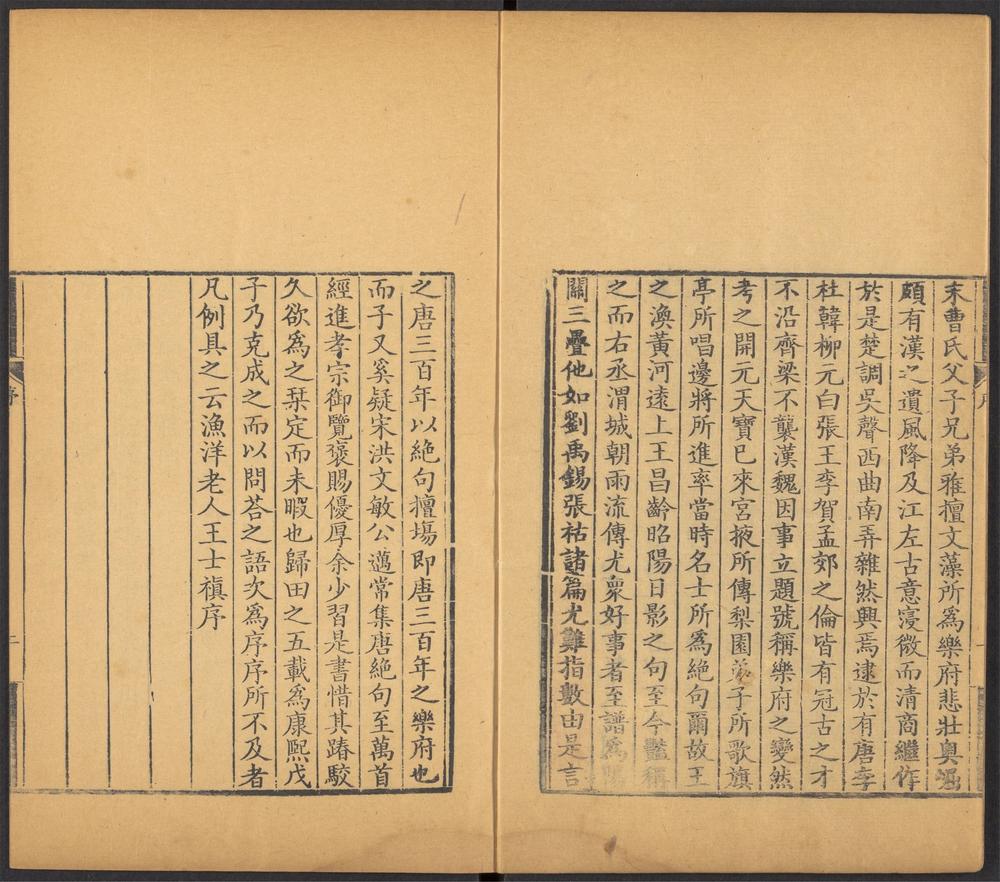 末曹氏父子兄弟雅擅文藻所爲樂府悲壯奧崛
頗有漢之遺風降及江左古意寖微而清商繼作
於是楚調吳聲西曲南弄雜然興焉逮於有唐李
杜韓柳元白張王李賀孟郊之倫皆有冠古之才
不沿齊梁不襲漢魏因事立題號稱樂府之變然
考之開元天寶已來宮掖所傳梨園弟子所歌旗
亭所唱邊將所進率當時名士所爲絕句爾故王
之渙黃河遠上王昌齡昭陽日影之句至今豔稱
之而右丞渭城朝雨流傳尤衆好事者至譜爲陽
關三疊他如劉禹錫張祜諸篇尤難指數由是言
序
之唐三百年以絕句擅塲即唐三百年之樂府也
而子又奚疑宋洪文敏公邁常集唐絕句至萬首
經進孝宗御覽褒賜優厚余少習是書惜其踳駮
久欲爲之栞定而未暇也歸田之五載爲康熙戊
子乃克成之而以問荅之語次爲序序所不及者
凡例具之云漁洋老人王士禛序
序
二